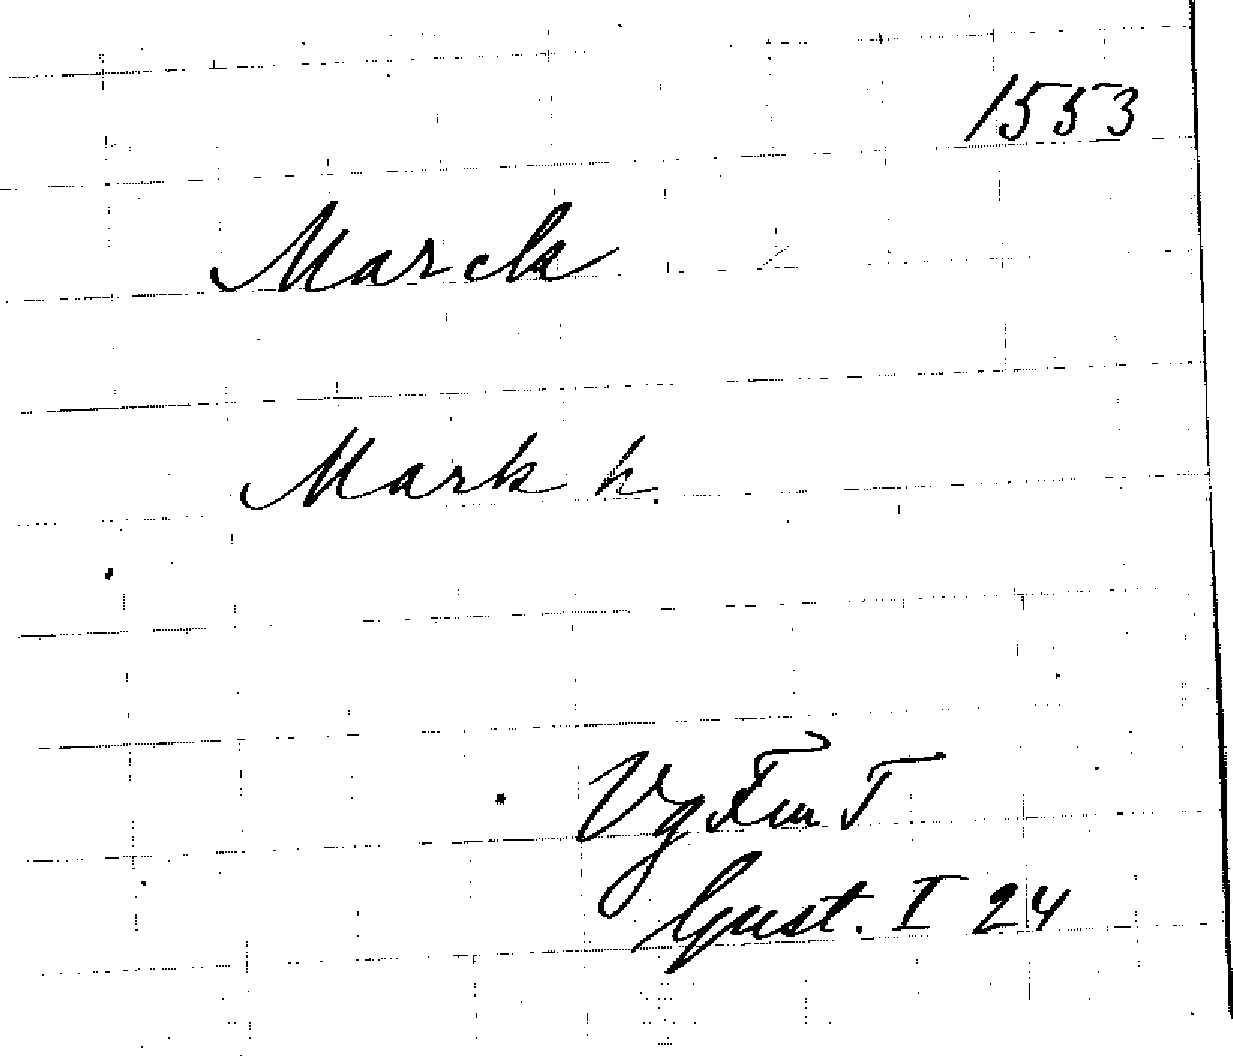 1553
Marck
Mark h.
Vg Fem T
Gust. I 24